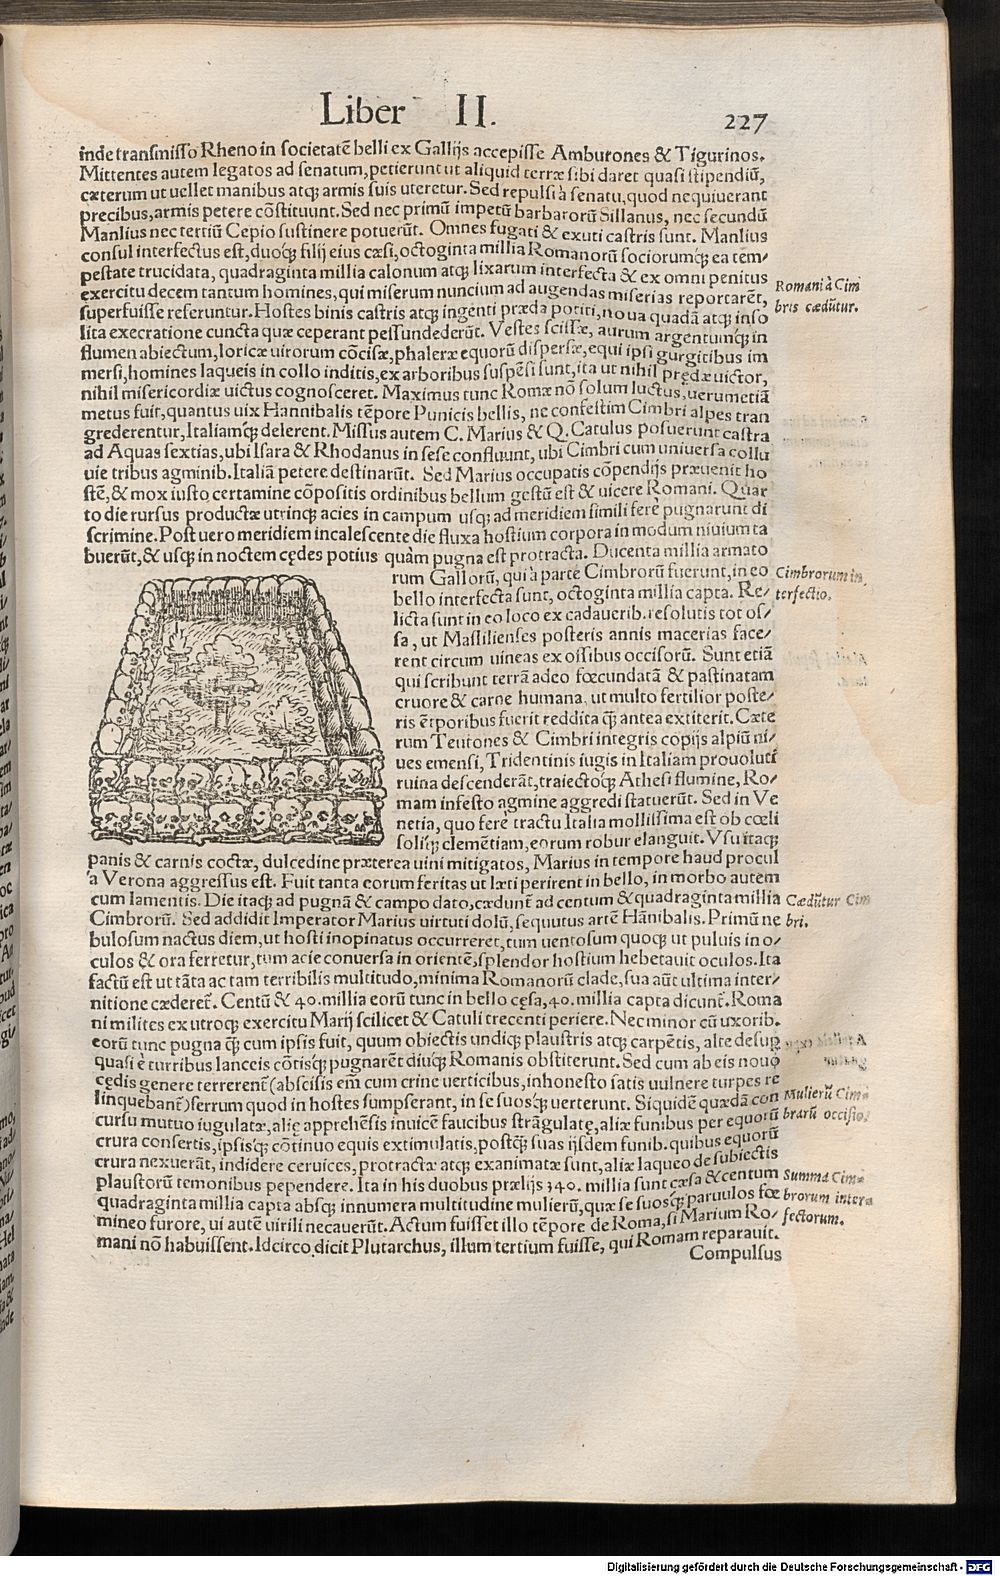 Liber II. 227
inde transmisso Rheno in societatē belli ex Gallijs accepisse Ambutones & Tigurinos.
Mittentes autem legatos ad senatum, petierunt ut aliquid terræ sibi daret quasi stipendiū,
cæterum ut uellet manibus atq; armis suis uteretur. Sed repulsi à senatu, quod nequiuerant
precibus, armis petere cōstituunt. Sed nec primū impetū barbarorū Sillanus, nec secundū
Manlius nec tertiū Cepio sustinere potuerūt. Omnes fugati & exuti castris sunt. Manlius
consul interfectus est, duoq; filij eius cæsi, octoginta millia Romanorū sociorumq; ea tem/
pestate trucidata, quadraginta millia calonum atq; lixarum interfecta & ex omni penitus
exercitu decem tantum homines, qui miserum nuncium ad augendas miserias reportarēt,
superfuisse referuntur. Hostes binis castris atq; ingenti præda potiti, no ua quadā atq; inso
lita execratione cuncta quæ ceperant pessundederūt. Vestes scissæ, aurum argentumq; in
flumen abiectum, loricæ uirorum cōcisæ, phaleræ equorū dispersæ, equi ipsi gurgitibus im
mersi, homines laqueis in collo inditis, ex arboribus suspēsi sunt, ita ut nihil prędæ uictor,
nihil misericordiæ uictus cognosceret. Maximus tunc Romæ nō solum luctus, uerumetiā
metus fuit, quantus uix Hannibalis tēpore Punicis bellis, ne confestim Cimbri alpes tran
grederentur, Italiamq; delerent. Missus autem C. Marius & Q. Catulus posuerunt castra
ad Aquas sextias, ubi Isara & Rhodanus in sese confluunt, ubi Cimbri cum uniuersa collu
uie tribus agminib. Italiā petere destinarūt. Sed Marius occupatis cōpendijs præuenit ho
stē, & mox iusto certamine cōpositis ordinibus bellum gestū est & uicere Romani. Quar
to die rursus productæ utrinq; acies in campum usq; ad meridiem simili ferè pugnarunt di
scrimine. Post uero meridiem incalescente die fluxa hostium corpora in modum niuium ta
buerūt, & usq; in noctem cędes potius quàm pugna est protracta. Ducenta millia armato
rum Gallorū, qui à parte Cimbrorū fuerunt, in eo
bello interfecta sunt, octoginta millia capta. Re/
licta sunt in eo loco ex cadauerib. resolutis tot os/
sa, ut Massilienses posteris annis macerias face/
rent circum uineas ex ossibus occisorū. Sunt etiā
qui scribunt terrā adeo fœcundatā & pastinatam
cruore & carne humana, ut multo fertilior poste/
ris ētporibus fuerit reddita q̄; antea extiterit. Cæte
rum Teutones & Cimbri integris copijs alpiū ni/
ues emensi, Tridentinis iugis in Italiam prouoluti
ruina descenderāt, traiectoq; Athesi flumine, Ro/
mam infesto agmine aggredi statuerūt. Sed in Ve
netia, quo ferè tractu Italia mollissima est ob cœli
soliq; clemētiam, eorum robur elanguit. Vsu itaq;
panis & carnis coctæ, dulcedine præterea uini mitigatos, Marius in tempore haud procul
à Verona aggressus est. Fuit tanta eorum feritas ut læti perirent in bello, in morbo autem
cum lamentis. Die itaq; ad pugnā & campo dato, cædunt̄ ad centum & quadraginta millia
Cimbrorū. Sed addidit Imperator Marius uirtuti dolū, sequutus artē Hānibalis. Primū ne
bulosum nactus diem, ut hosti inopinatus occurreret, tum uentosum quoq; ut puluis in o/
culos & ora ferretur, tum acie conuersa in orientē, splendor hostium hebetauit oculos. Ita
factū est ut tāta ac tam terribilis multitudo, minima Romanorū clade, sua aūt ultima inter/
nitione cæderet̄. Centū & 40. millia eorū tunc in bello cęsa, 40. millia capta dicunt̄. Roma
ni milites ex utroq; exercitu Marij scilicet & Catuli trecenti periere. Nec minor cū uxorib.
eorū tunc pugna q̄; cum ipsis fuit, quum obiectis undiq; plaustris atq; carpētis, alte desup
quasi è turribus lanceis cōtisq; pugnarēt diuq; Romanis obstiterunt. Sed cum ab eis nouo
cędis genere terrerent̄ (abscisis em̄ cum crine uerticibus, inhonesto satis uulnere turpes re
linquebant̄) ferrum quod in hostes sumpserant, in se suosq; uerterunt. Siquidē quædā con
cursu mutuo iugulatæ, aliæ apprehēsis inuicē faucibus strāgulatę, aliæ funibus per equorū
crura consertis, ipsisq; cōtinuo equis extimulatis, postq̄; suas ijsdem funib. quibus equorū
crura nexuerāt, indidere ceruices, protractæ atq; exanimatæ sunt, aliæ laqueo de subiectis
plaustorū temonibus pependere. Ita in his duobus prælijs 340. millia sunt cæsa & centum
quadraginta millia capta absq; innumera multitudine mulierū, quæ se suosq; paruulos fœ
mineo furore, ui autē uirili necauerūt. Actum fuisset illo tēpore de Roma, si Marium Ro/
mani nō habuissent. Idcirco dicit Plutarchus, illum tertium fuisse, qui Romam reparauit.
Compulsus
Romani à Cim
bris cædūtur.
Cimbrorum in
terfectio.
Cædūtur Cim
bri.
Mulierū Cim-
brarū occisio.
Summa Cim-
brorum inter-
fectorum.
Digitalisierung gefördert durch die Deutsche Forschungsgemeinschaft - DFG